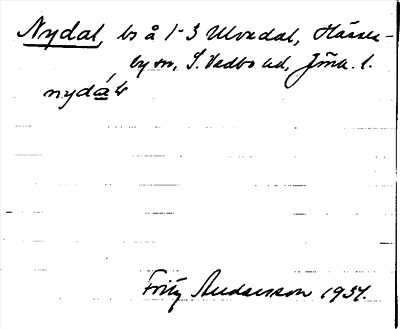 Nydal, bs å 1-3 Ulvedal, Hässle-
by sn, S. Vedbo hd, Jönk. l.
nydá̱ɫ
Fritz Andersson 1937.